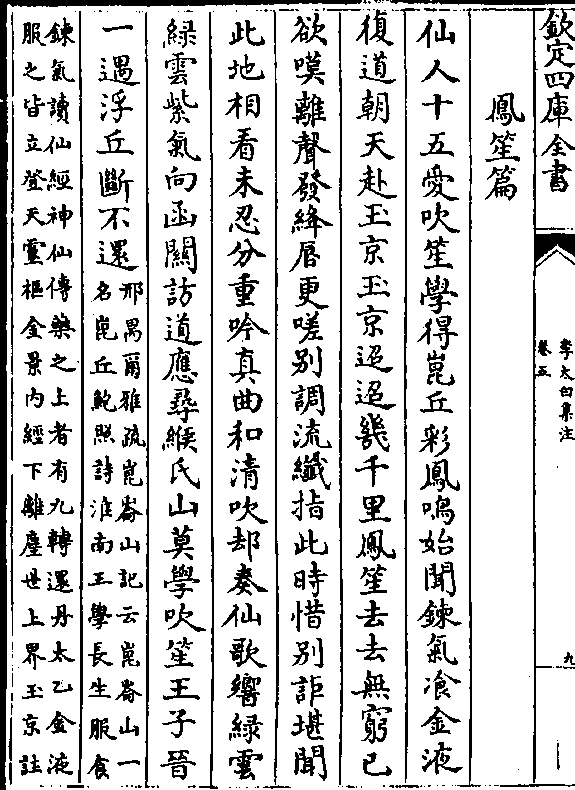 欽定四庫全書
李太白集注
卷五
九
鳳笙篇
仙人十五愛吹笙學得崑丘彩鳳鳴始聞鍊氣飡金液
復道朝天赴玉京玉京迢迢幾千里鳳笙去去無窮已
欲嘆離聲發絳唇更嗟別調流纖指此時惜別詎堪聞
此地相看未忍分重吟真曲和清吹却奏仙歌響綠雲
綠雲紫氣向函關訪道應尋緱氏山莫學吹笙王子晉
一遇浮丘斷不還
邢昺爾雅疏崑崙山記云崑崙山一
名崑丘鮑照詩淮南王學長生服食
鍊氣讀仙經神仙傳藥之上者有九轉還丹太乙金液
服之皆立登天靈樞金景內經下離塵世上界玉京註